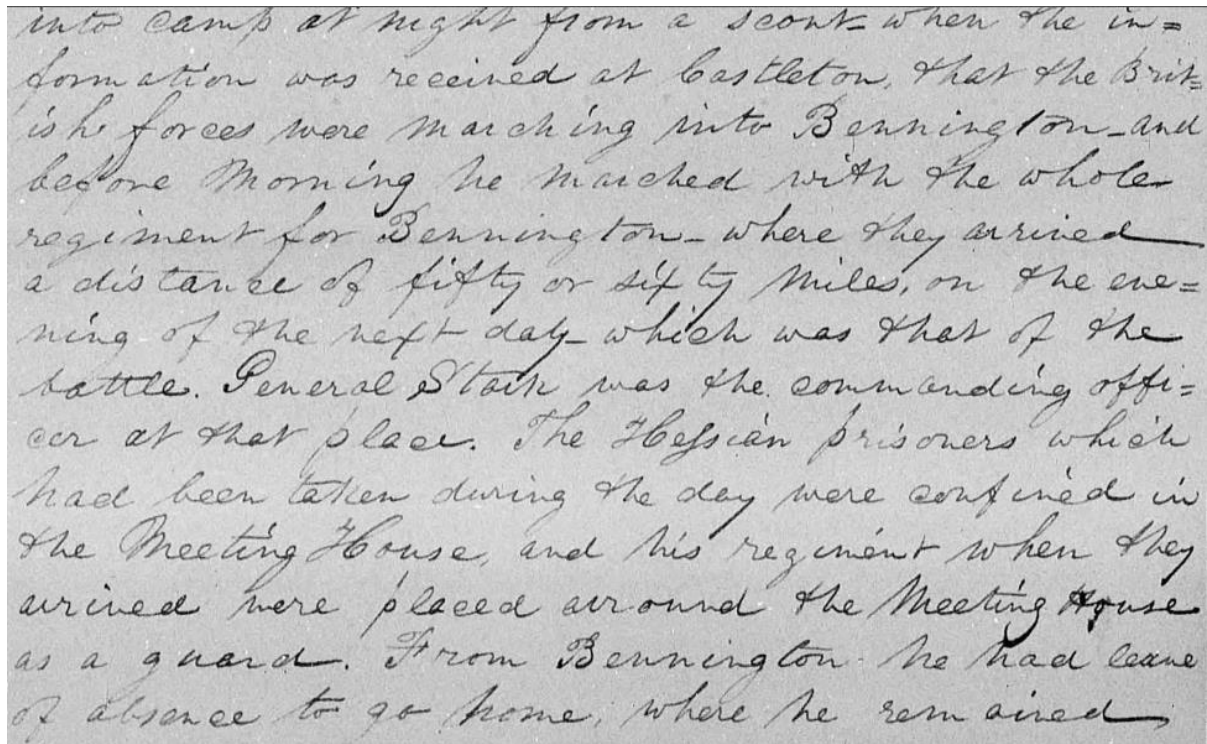 into camp at night from a scout- when the in=
formation was received at Castleton, that the Brit=
ish forces were marching into Bennington - and
before Morning he marched with the whole
regiment for Bennington - where they arrived
a distance of fifty or sixty Miles, on the eve=
ning of the next day - which was that of the
battle. General Stark was the commanding offi=
cer at that place. The Hessian prisoners which
had been taken during the day were confined in
the Meeting House, and his regiment when they
arrived were placed arround the Meeting House
as a guard. From Bennington he had leave
of absence to go home, where he remained